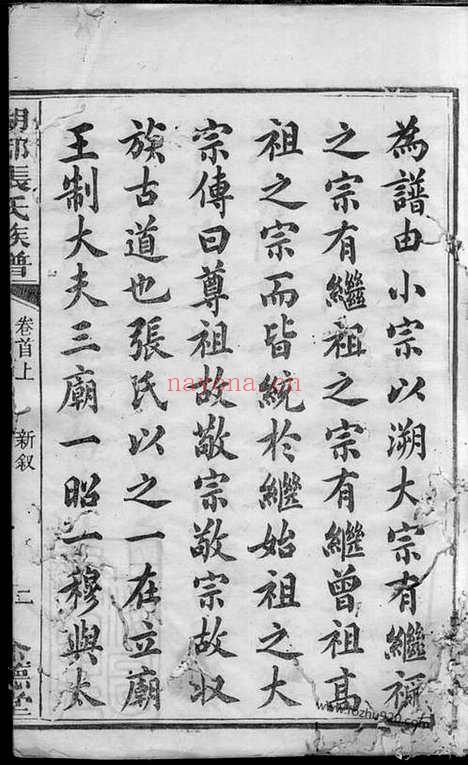 為譜由小宗以溯大宗有繼禰
之宗有繼祖之宗有繼曾祖高
祖之宗而皆統於繼始祖之大
宗傳曰尊祖故敬宗敬宗故収
族古道也張氏以之一在立廟
王制大夫三廟一昭一穆與太
張氏族譜
卷首上
新叙
二
德堂
nayona.cn
www.rozhu920.com